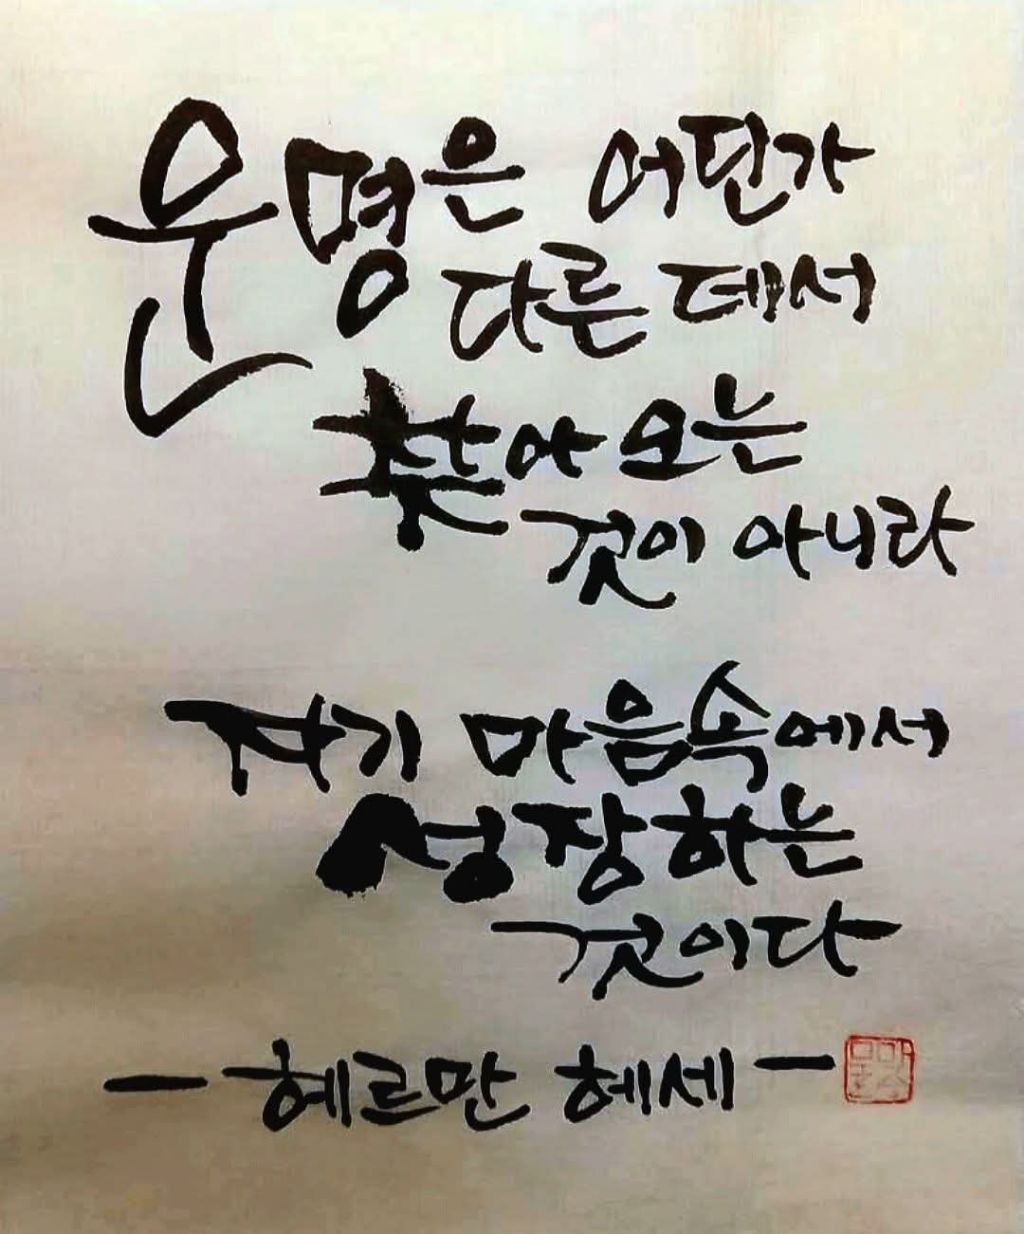 운명은 어딘가
다른 데서
찾아오는
것이 아니라
자기 마음속에서
성장하는
것이다
- 헤르만 헤세 -